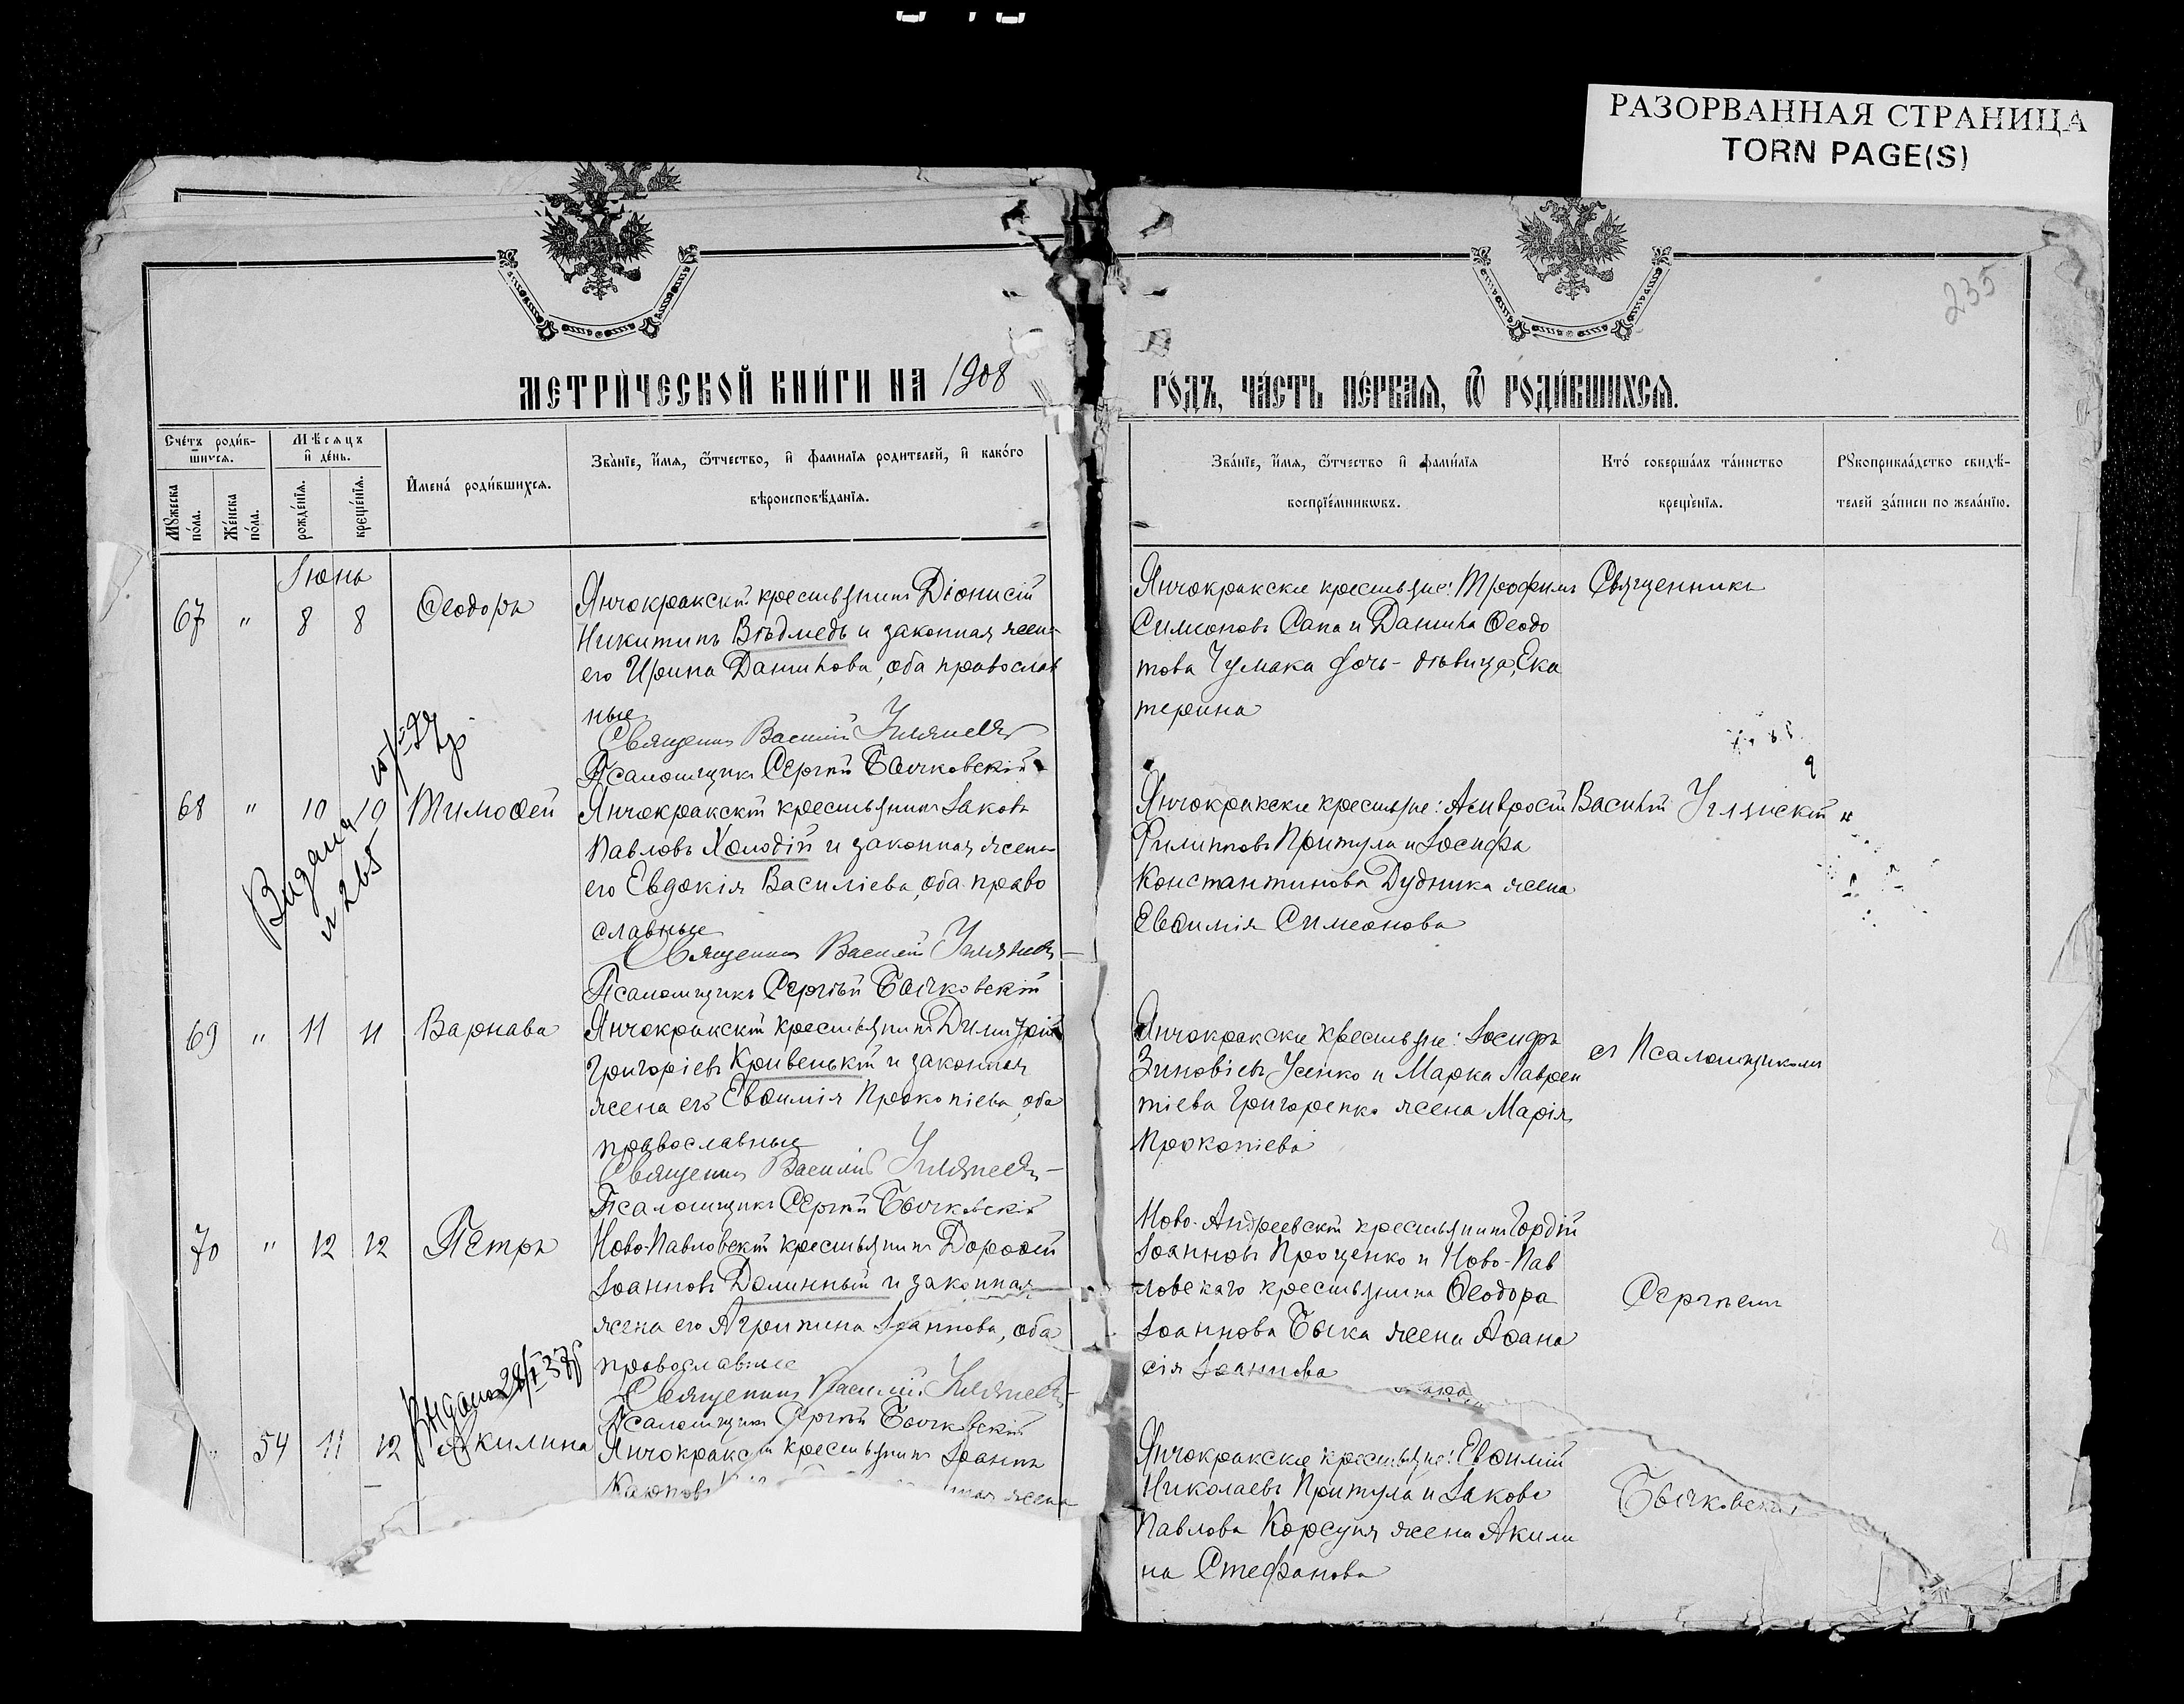 РАЗОРВАННАЯ СТРАНИЦА
TORN PAGE(S)
235
МЕТРИ́ЧЕСКОЙ КНИ́ГИ НА 1908
ГО́ДЪ, ЧА́СТЬ ПЕ́РВАЯ, Ѿ РОДИ́ВШИХСЯ.
Сче́тъ роди́в-
шихся.
Мѣсяцъ
и҆ де́нь.
Мꙋ́жеска
по́ла.
Же́нска
по́ла.
рожде́нїя.
креще́нїя.
И҆мена́ роди́вшихся.
Зва́нїе, и҆́мя, ѻ҆́тчество, и҆ фами́лїя родителей, и҆ како́го
вѣроисповѣ́данїя.
Зва́нїе, и҆́мя, ѻ҆́тчество и҆ фами́лїя
воспрїе́мникѡвъ.
Кто́ соверша́лъ та́инство
креще́нїя.
Рꙋкоприкла́дство свидѣ́-
телей за́писи по жела́нїю.
Іюнь
67 " 8 8 Ѳеодоръ
Янчокракскій крестьянинъ Діонисій
Никитинъ Вѣдмедь и законная жена
его Ирина Даниилова, оба православ
ные
Священникъ Василій
Псаломщикъ Сергій Бычковскій
Янчокракскіе крестьяне: Трофимъ
Симоновъ Сапа и Даниила Ѳеодо
това Чумака дочь-дѣвица, Ека
терина
Священникъ
68 " 10 10 Тимоѳей
Выдана
№ 265
Янчокракскій крестьянинъ Іаковъ
Павловъ Холодій и законная жена
его Евдокія Василіева, оба право
славные
Священникъ Василій
Псаломщикъ Сергій Бычковскій
Янчокракскіе крестьяне: Амвросій
Филипповъ Притула и Іосифа
Константинова Дудника жена
Евѳимія Симеонова
Василій
69 " 11 11 Варнава
Янчокракскій крестьянинъ Димитрій
Григоріевъ Кривенькій и законная
жена его Евѳимія Прокопіева, оба
православные
Священникъ Василій
Псаломщикъ Сергій Бычковскій
Янчокракскіе крестьяне: Іосифъ
Зиновіевъ Усенко и Марка Лаврен
тіева Григоренко жена Марія
Прокопіева
съ Псаломщикомъ
70 " 12 12 Петръ
Ново-Павловскій крестьянинъ Дороѳей
Іоанновъ Долинный и законная
жена его Агриппина Іоаннова, оба
православные
Священникъ Василій
Псаломщикъ Сергій Бычковскій
Ново-Андреевскій крестьянинъ Гордій
Іоанновъ Проценко и Ново-Пав
ловскаго крестьянина Ѳеодора
Іоаннова Быка жена Аѳана
сія Іоаннова
Сергіемъ
Выдана
" 54 11 12 Акилина
Янчокракскій крестьянинъ Іоаннъ
жена
Янчокракскіе крестьяне: Евѳимій
Николаевъ Притула и Іакова
Павлова Корсуня жена Акили
на Стефанова
Бычковскимъ